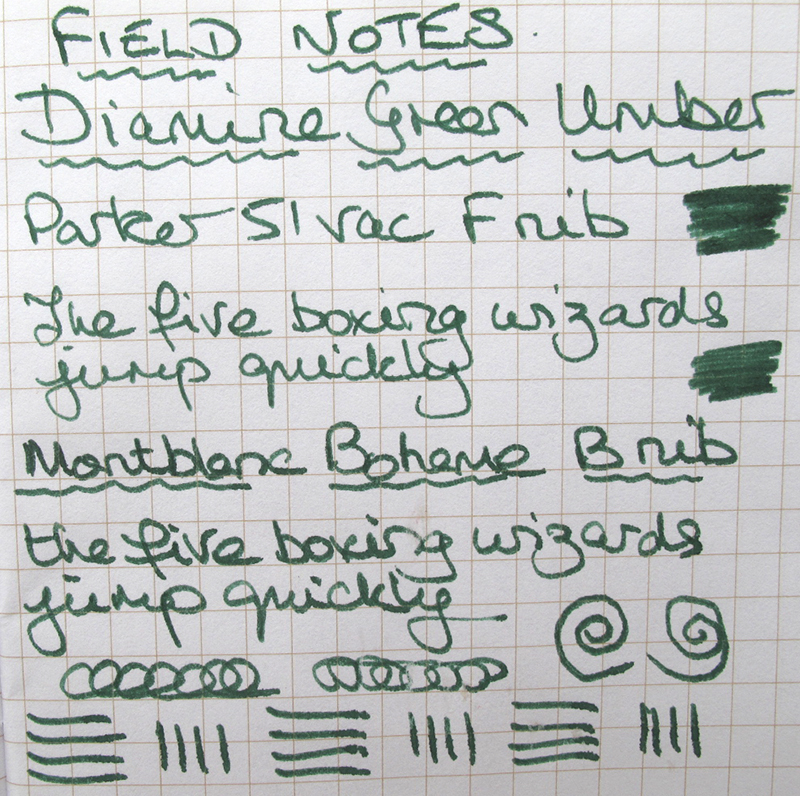 FIELD NOTES.
Diamine Green Umber
Parker 51 vac F nib
The five boxing wizards
jump quickly
Montblanc Boheme B nib
the five boxing wizards
jump quickly